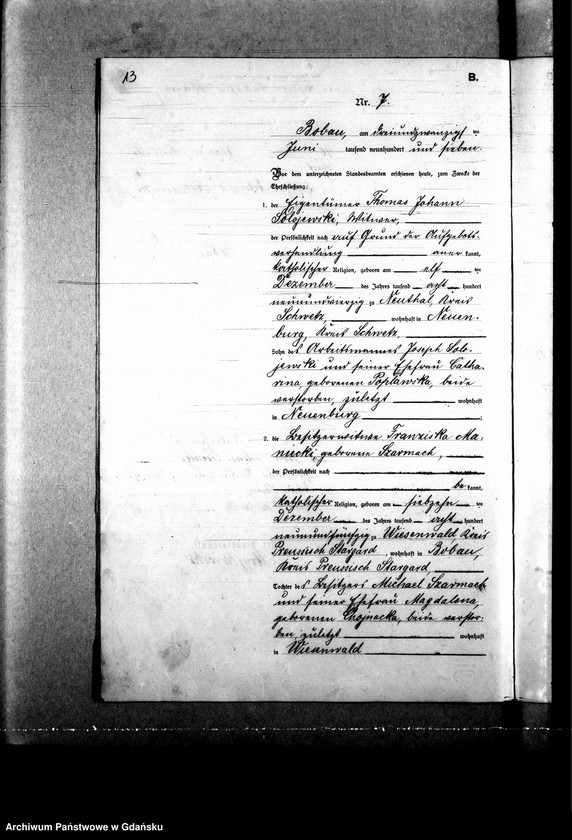 13
B.
Nr. 7.
Bobau, am dreiundzwanzigsten
Juni tausend neunhundert und sieben.
Vor dem unterzeichneten Standesbeamten erschienen heute, zum Zwecke der
Eheschließung:
1. der Eigentümer Thomas Johann
Solojewski, Witwer,
der Persönlichkeit nach auf Grund der Aufgebots-
verhandlung anerkannt,
katholischer Religion, geboren am elften
Dezember des Jahres tausend achthundert
neunundvierzig zu Neuthal, Kreis
Schwetz, wohnhaft in Neuen-
burg, Kreis Schwetz,
Sohn des Arbeitsmannes Joseph Solo-
jewski und seiner Ehefrau Catha-
rina, geborenen Poplawska, beide
verstorben, zuletzt wohnhaft
in Neuenburg;
2. die Besitzerwitwe Franziska Ma-
niecki, geborene Szarmach,
der Persönlichkeit nach
bekannt,
katholischer Religion, geboren am siebzehnten
Dezember des Jahres tausend achthundert
neunundfünfzig zu Wiesenwald Kreis
Preussisch Stargard, wohnhaft in Bobau,
Kreis Preussisch Stargard
Tochter des Besitzers Michael Szarmach
und seiner Ehefrau Magdalena,
geborenen Chojnacka, beide verstor-
ben, zuletzt wohnhaft
in Wiesenwald
Archiwum Państwowe w Gdańsku